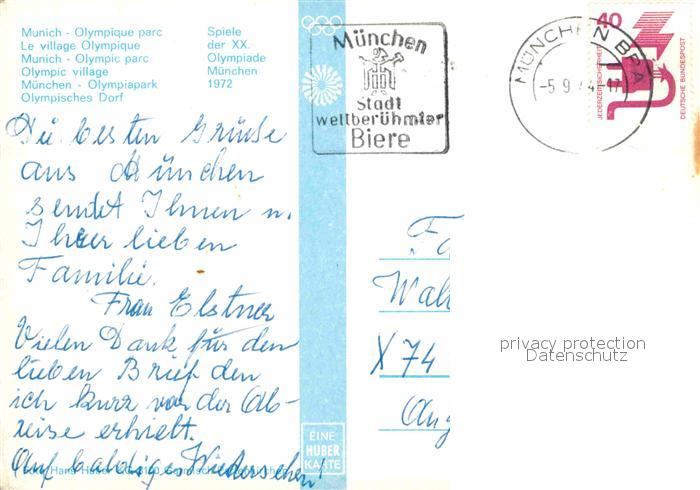 Munich - Olympique parc
Le village Olympique
Munich - Olympic parc
Olympic village
München - Olympiapark
Olympisches Dorf
Spiele
der XX.
Olympiade
München
1972
München
Stadt
weltberühmter
Biere
MÜNCHEN BPA
-5.9.74-17
40
JEDERZEIT SICHERHEIT
DEUTSCHE BUNDESPOST
Die besten Grüße
aus München
sendet Ihnen u.
Ihrer lieben
Familie.
Frau Elstner
Vielen Dank für den
lieben Brief den
ich kurz vor der Ab-
reise erhielt.
Auf baldiges Wiedersehen!
Fa
Wal
X 74
privacy protection
Datenschutz
EINE
HUBER
KARTE
Hans Huber